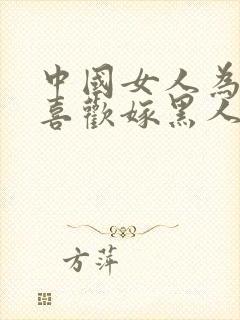 中國女人為
喜歡嫁黑人
方萍